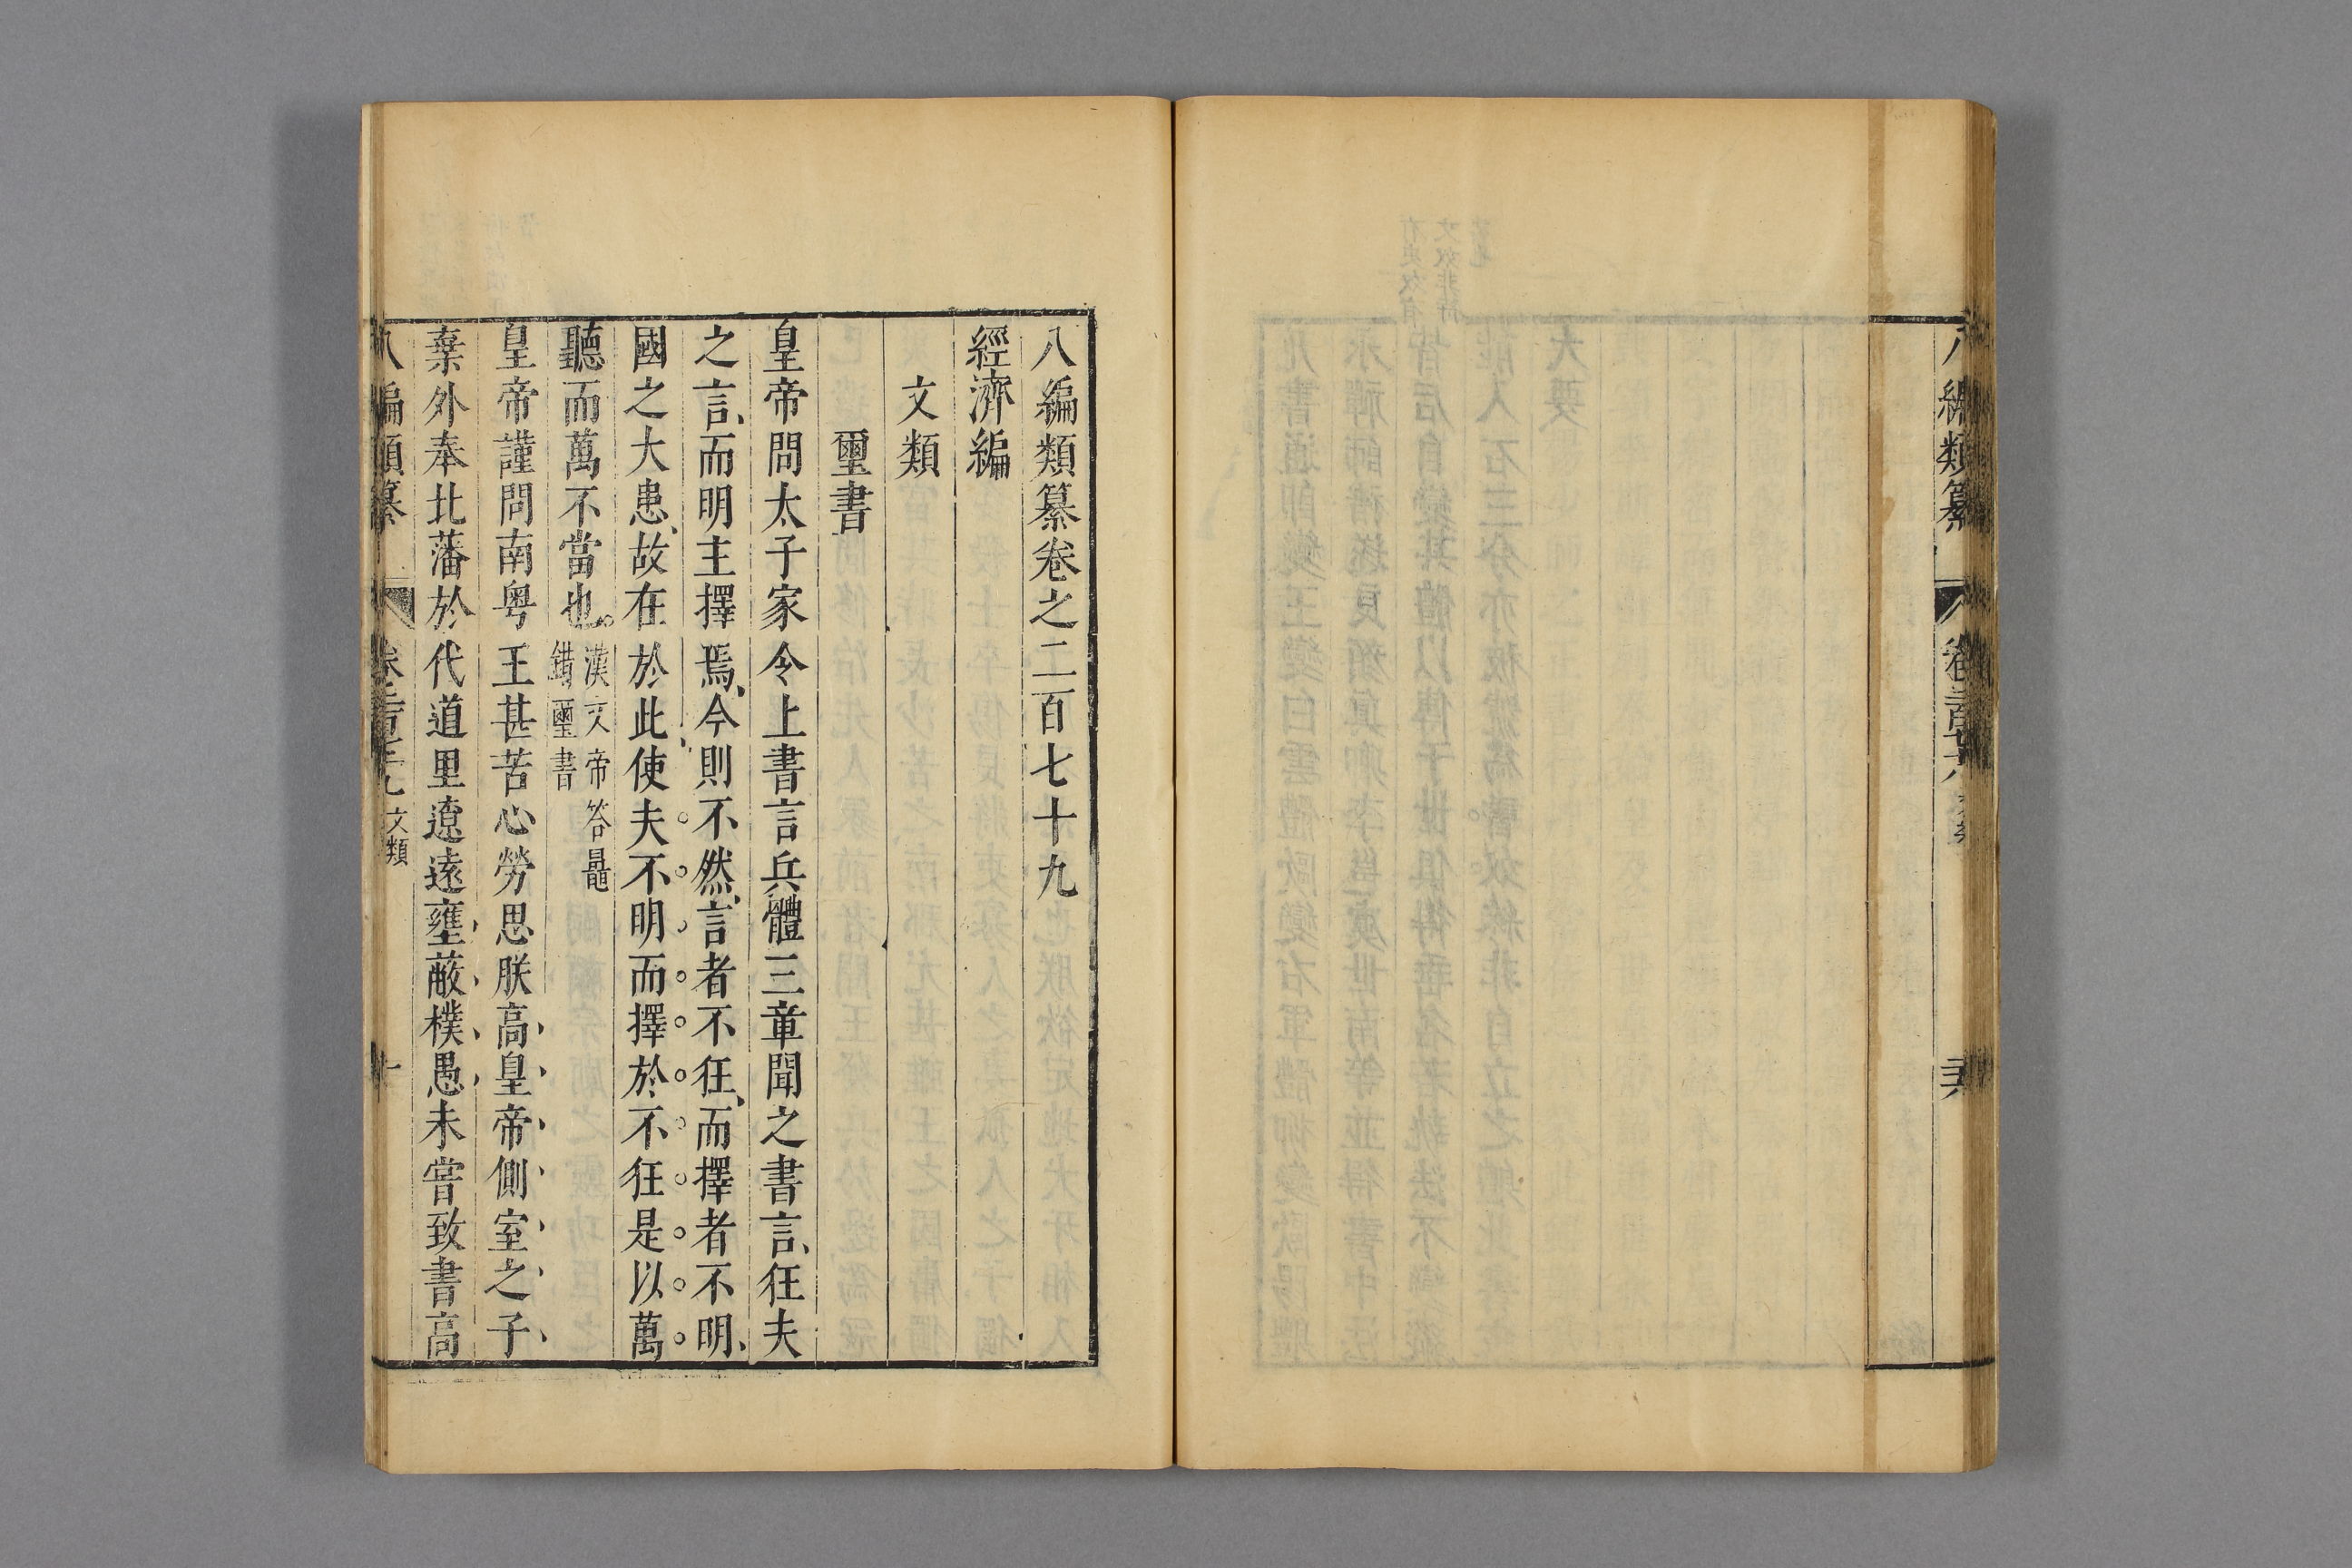 八編類纂
八編類纂卷之二百七十九
經濟編
文類
璽書
皇帝問太子家令上書言兵體三章聞之書言、狂夫
之言、而明主擇焉、今則不然、言者不狂、而擇者不明、
國之大患、故在於此、使夫不明而擇於不狂是以萬
聽而萬不當也。漢文帝答鼂
錯璽書
皇帝謹問南粤王甚苦心勞思朕高皇帝側室之子、
棄外奉北藩於代道里遼遠壅蔽樸愚未嘗致書高
八編類纂
文類